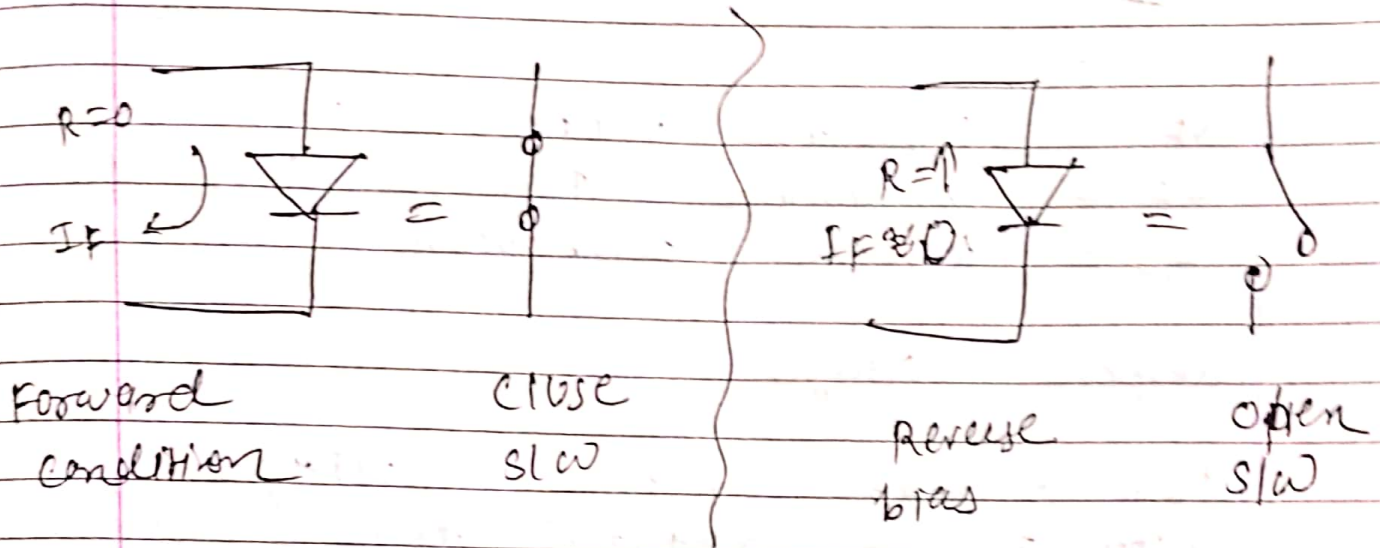 R=0
IF
=
Forward
condition.
close
s/w
R=↑
IF≈0.
=
Reverse
bias
open
s/w